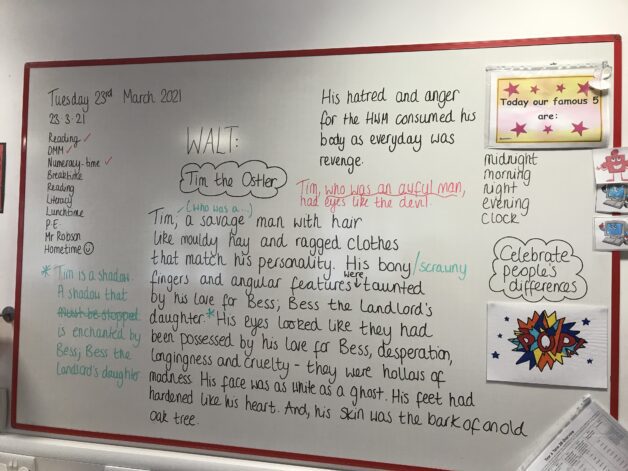 Tuesday 23rd March 2021
23.3.21
Reading ✓
DMM ✓
Numeracy-time ✓
Breaktime
Reading
Literacy
Lunchtime
P.E
Mr Robson
Hometime ☺
* Tim is a shadow.
A shadow that
must be stopped
is enchanted by
Bess; Bess the
Landlord's daughter
WALT:
Tim the Ostler
His hatred and anger
for the HWM consumed his
body as everyday was
revenge.
Tim, who was an awful man,
had eyes like the devil.
(who was a...)
Tim, a savage man with hair
like mouldy hay and ragged clothes
that match his personality. His bony/scrawny
fingers and angular features were taunted
by his love for Bess; Bess the Landlord's
daughter.* His eyes looked like they had
been possessed by his love for Bess, desperation,
longingness and cruelty - they were hollows of
madness. His face was as white as a ghost. His feet had
hardened like his heart. And, his skin was the bark of an old
oak tree.
Today our famous 5
are:
midnight
morning
night
evening
clock
Celebrate
people's
differences
POP!